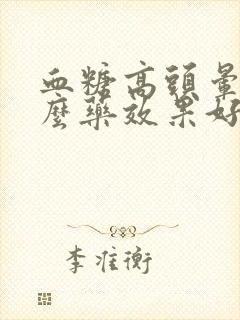 血糖高頭暈
麼藥效果好
李准衡